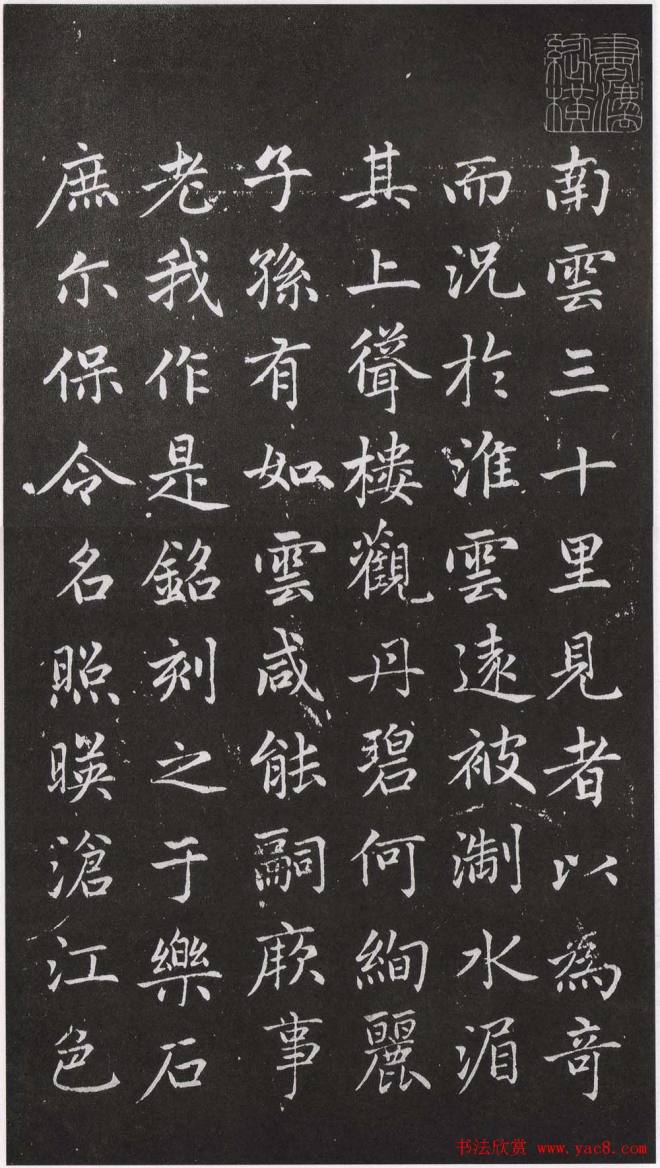 南雲三十里見者以為奇
而況於淮雲遠被淛水湄
其上聳樓觀丹碧何絢麗
子孫有如雲咸能嗣厥事
老我作是銘刻之于樂石
庶尔保令名照暎滄江色
书法欣赏 www.yac8.com